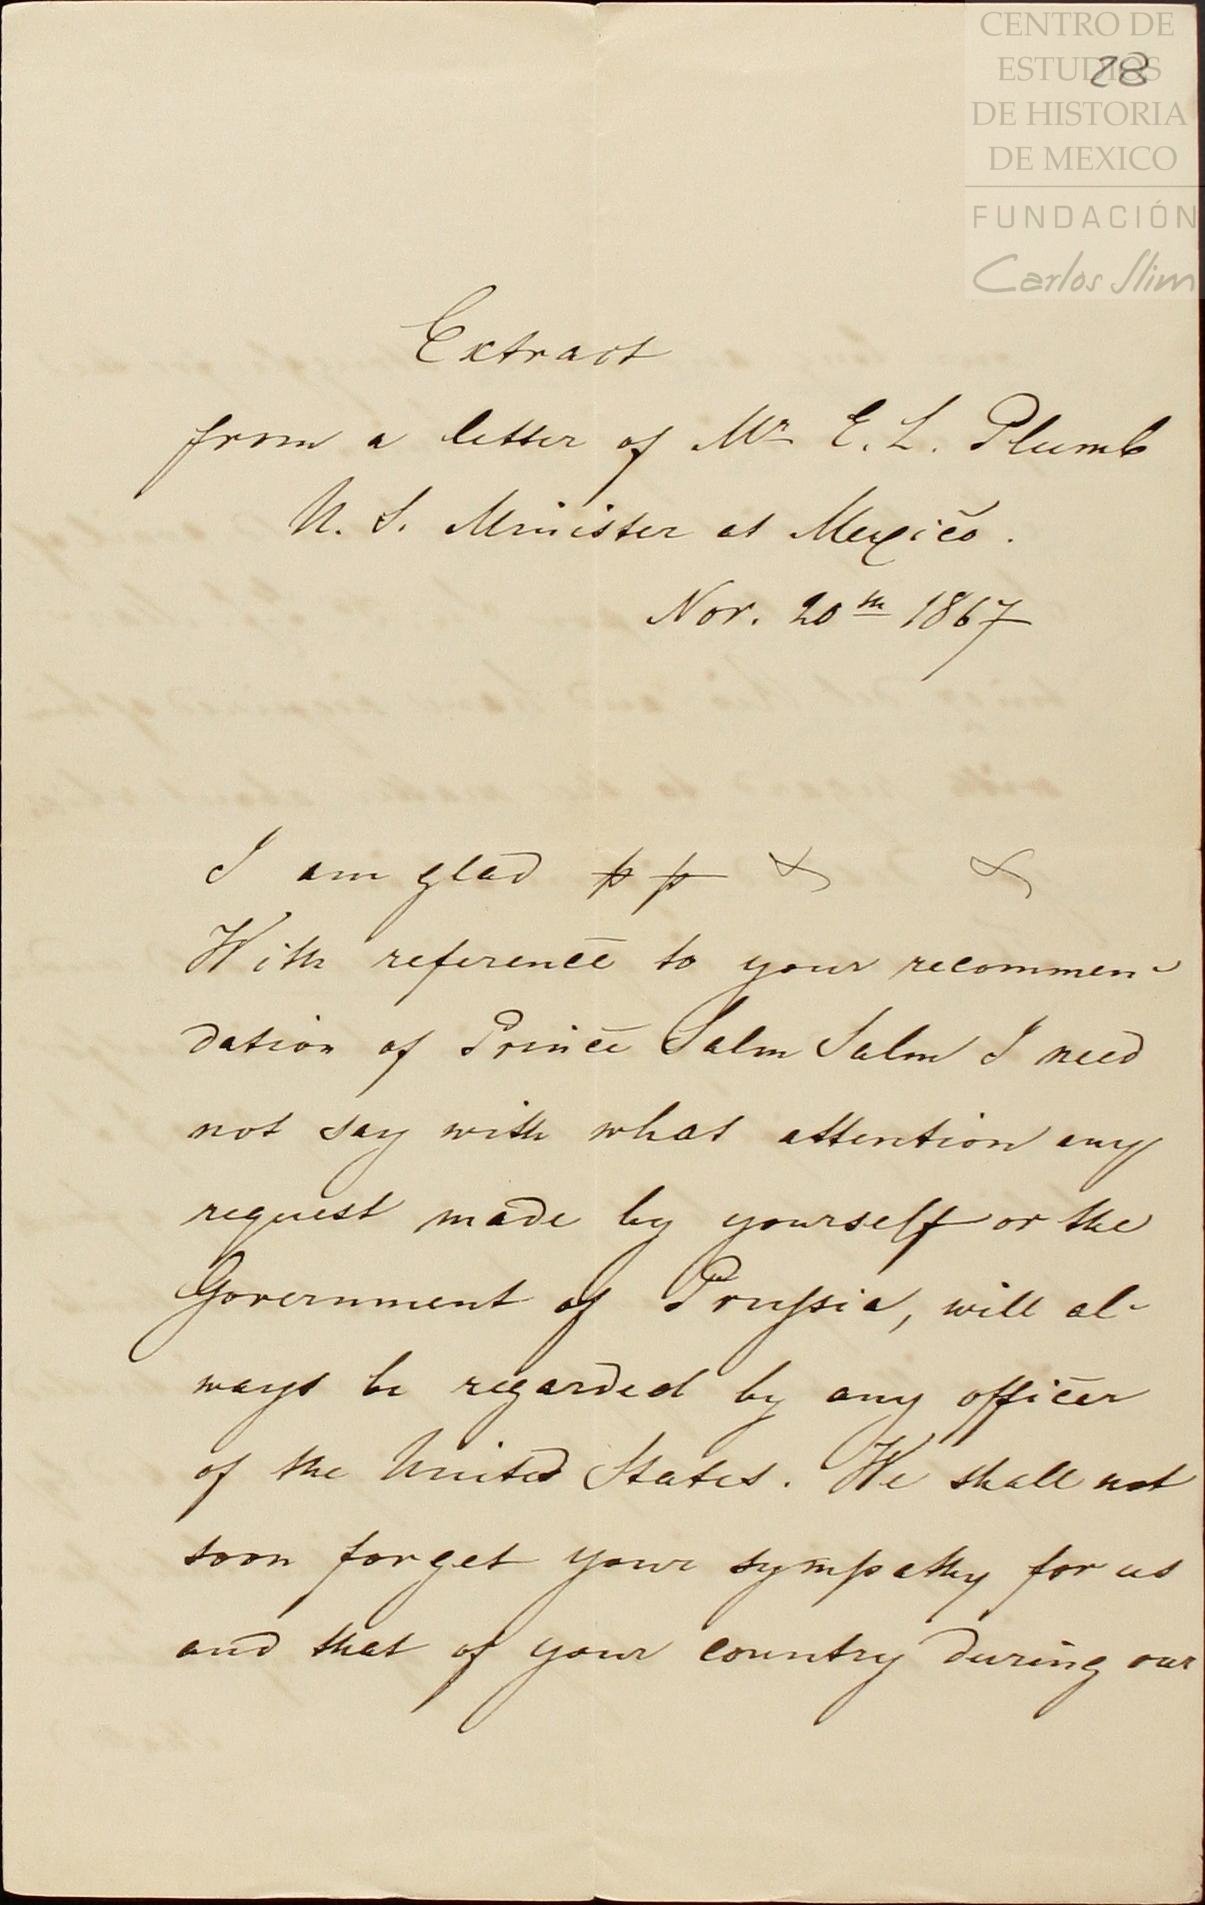 CENTRO DE
ESTUDIOS
DE HISTORIA
DE MEXICO
FUNDACIÓN
Carlos Slim
28
Extract
from a letter of Mr E. L. Plumb
U. S. Minister at Mexico.
Nov. 20th 1867
I am glad
With reference to your recommen-
dation of Prince Salm Salm I need
not say with what attention any
request made by yourself or the
Government of Prussia, will al-
ways be regarded by any officer
of the United States. We shall not
soon forget your sympathy for us
and that of your country during our